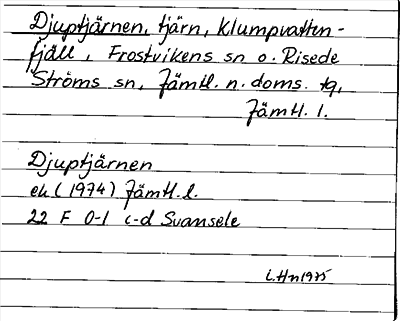 Djuptjärnen, tjärn, Klumpvatten-
fjäll, Frostvikens sn o. Risede
Ströms sn, Jämtl. n. doms. tg,
Jämtl. l.
Djuptjärnen
ek (1974) Jämtl. l.
22 F 0-1 c-d Svansele
L.Hn 1975